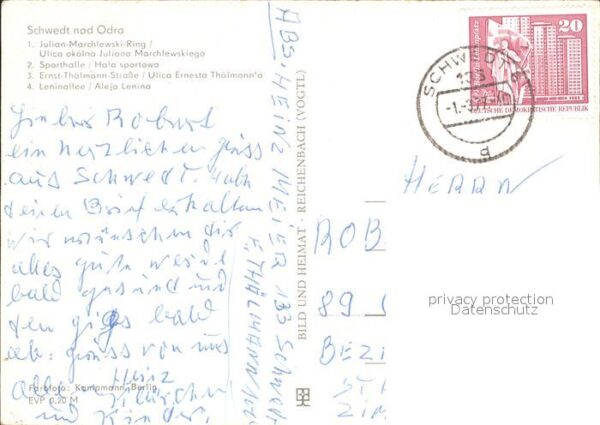 Schwedt nad Odra
1. Julian-Marchlewski-Ring /
Ulica okólna Juliana Marchlewskiego
2. Sporthalle / Hala sportowa
3. Ernst-Thälmann-Straße / Ulica Ernesta Thälmann'a
4. Leninallee / Aleja Lenina
Lieber Robert
ein herzlichen Gruss
aus Schwedt. Habe
deinen Brief erhalten
wir wünschen dir
alles gute werde
bald gesund und
den gips bald
ab: gruss von uns
alle Heinz
und Kinder,
Farbfoto: Kampmann, Berlin
EVP 0,20 M
ABS HEINZ MEIER 133 Schwedt
E. THÄLMANN
BILD UND HEIMAT · REICHENBACH (VOGTL)
SCHWEDT
133
20
DEUTSCHE DEMOKRATISCHE REPUBLIK
d
HERRN
ROB
89
BEZI
privacy protection
Datenschutz